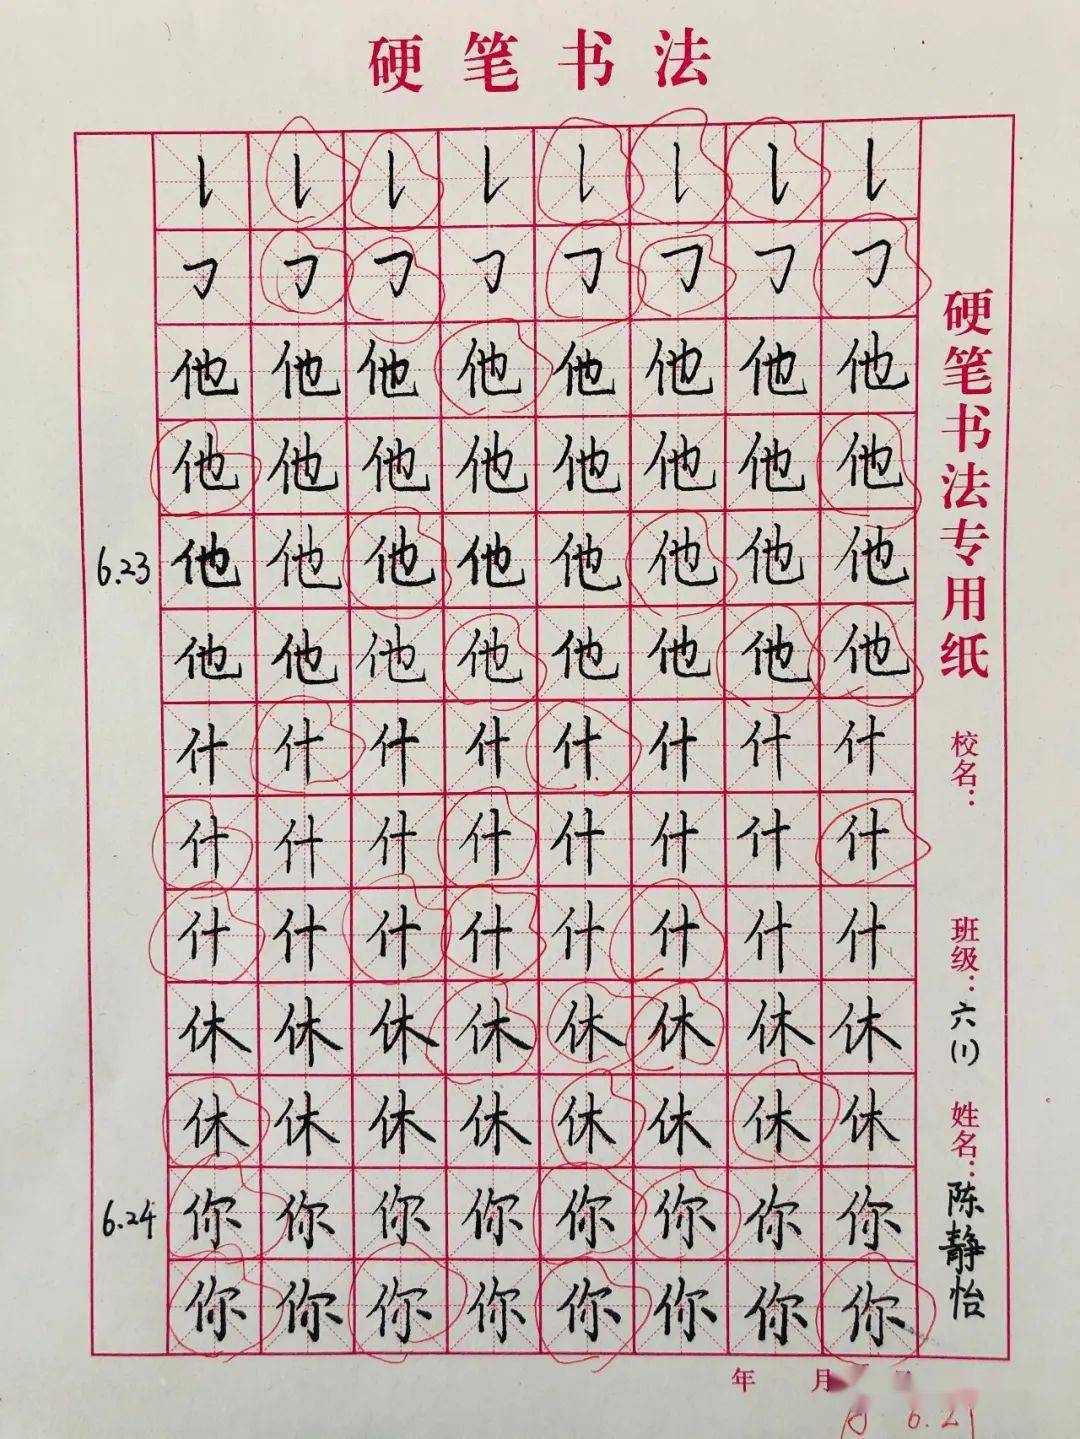 硬笔书法
㇙㇙㇙㇙㇙㇙㇙㇙
㇆㇆㇆㇆㇆㇆㇆㇆
他他他他他他他他
他他他他他他他他
6.23 他他他他他他他他
他他他他他他他他
什什什什什什什什
什什什什什什什什
什什什什什什什什
休休休休休休休休
休休休休休休休休
6.24 你你你你你你你你
你你你你你你你你
硬笔书法专用纸
校名：
班级：六(1)
姓名：陈静怡
年 月
6.21